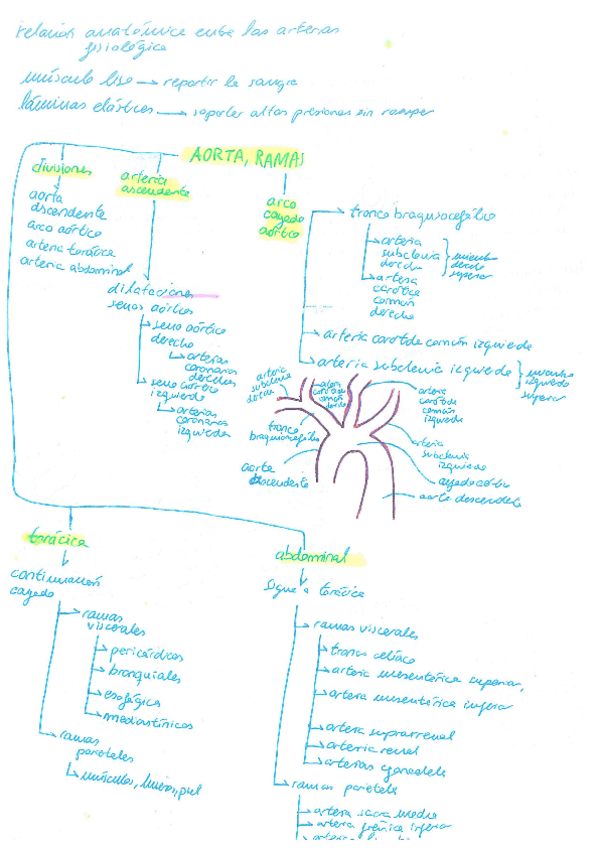 relación anatómica entre las arterias
fisiológica
músculo liso → repartir la sangre
láminas elásticas → soportar altas presiones sin romper
AORTA, RAMAS
divisiones
aorta
descendente
arco aórtico
arteria torática
arteria abdominal
arteria
ascendente
dilataciones
senos aórticos
seno aórtico
derecho
arterias
coronarias
derechas
seno aórtico
izquierdo
arterias
coronarias
izquierdas
arco
cayado
aórtico
tronco braquiocefálico
arteria
subclavia
derecha
miembro
derecho
superior
arteria
carótida
común
derecha
arteria carótida común izquierda
arteria subclavia izquierda
miembro
izquierdo
superior
arteria
subclavia
derecha
arteria
carótida
común
derecha
arteria
carótida
común
izquierda
tronco
braquiocefálico
arteria
subclavia
izquierda
aorta
descendente
cayado aórtico
aorta descendente
torácica
continuación
cayado
ramas
viscerales
pericárdicos
bronquiales
esofágica
mediastínicos
ramas
parietales
músculos, huesos, piel
abdominal
sigue a torácica
ramas viscerales
tronco celíaco
arteria mesentérica superior,
artera mesentérica inferior
artera suprarrenal
arteria renal
arterias gonadales
ramas parietales
artera sacra media
artera frénica inferior